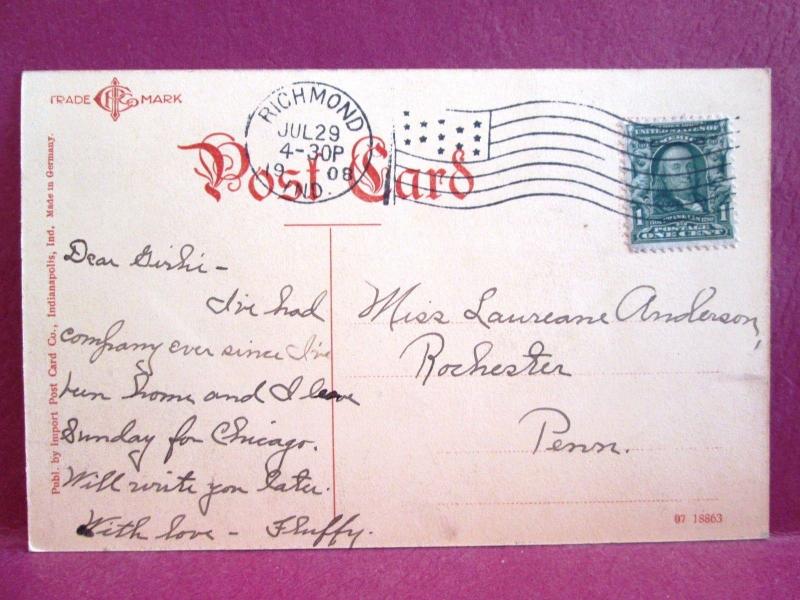 TRADE MARK
RICHMOND
JUL 29
4-30P
19 08
IND.
Post Card
UNITED STATES OF AMERICA
1 1
POSTAGE
ONE CENT
Dear Girlie –
I've had
company ever since I've
been home and I leave
Sunday for Chicago.
Will write you later.
With love – Fluffy.
Miss Laureane Anderson,
Rochester
Penn.
Publ. by Import Post Card Co., Indianapolis, Ind. Made in Germany.
07 18863